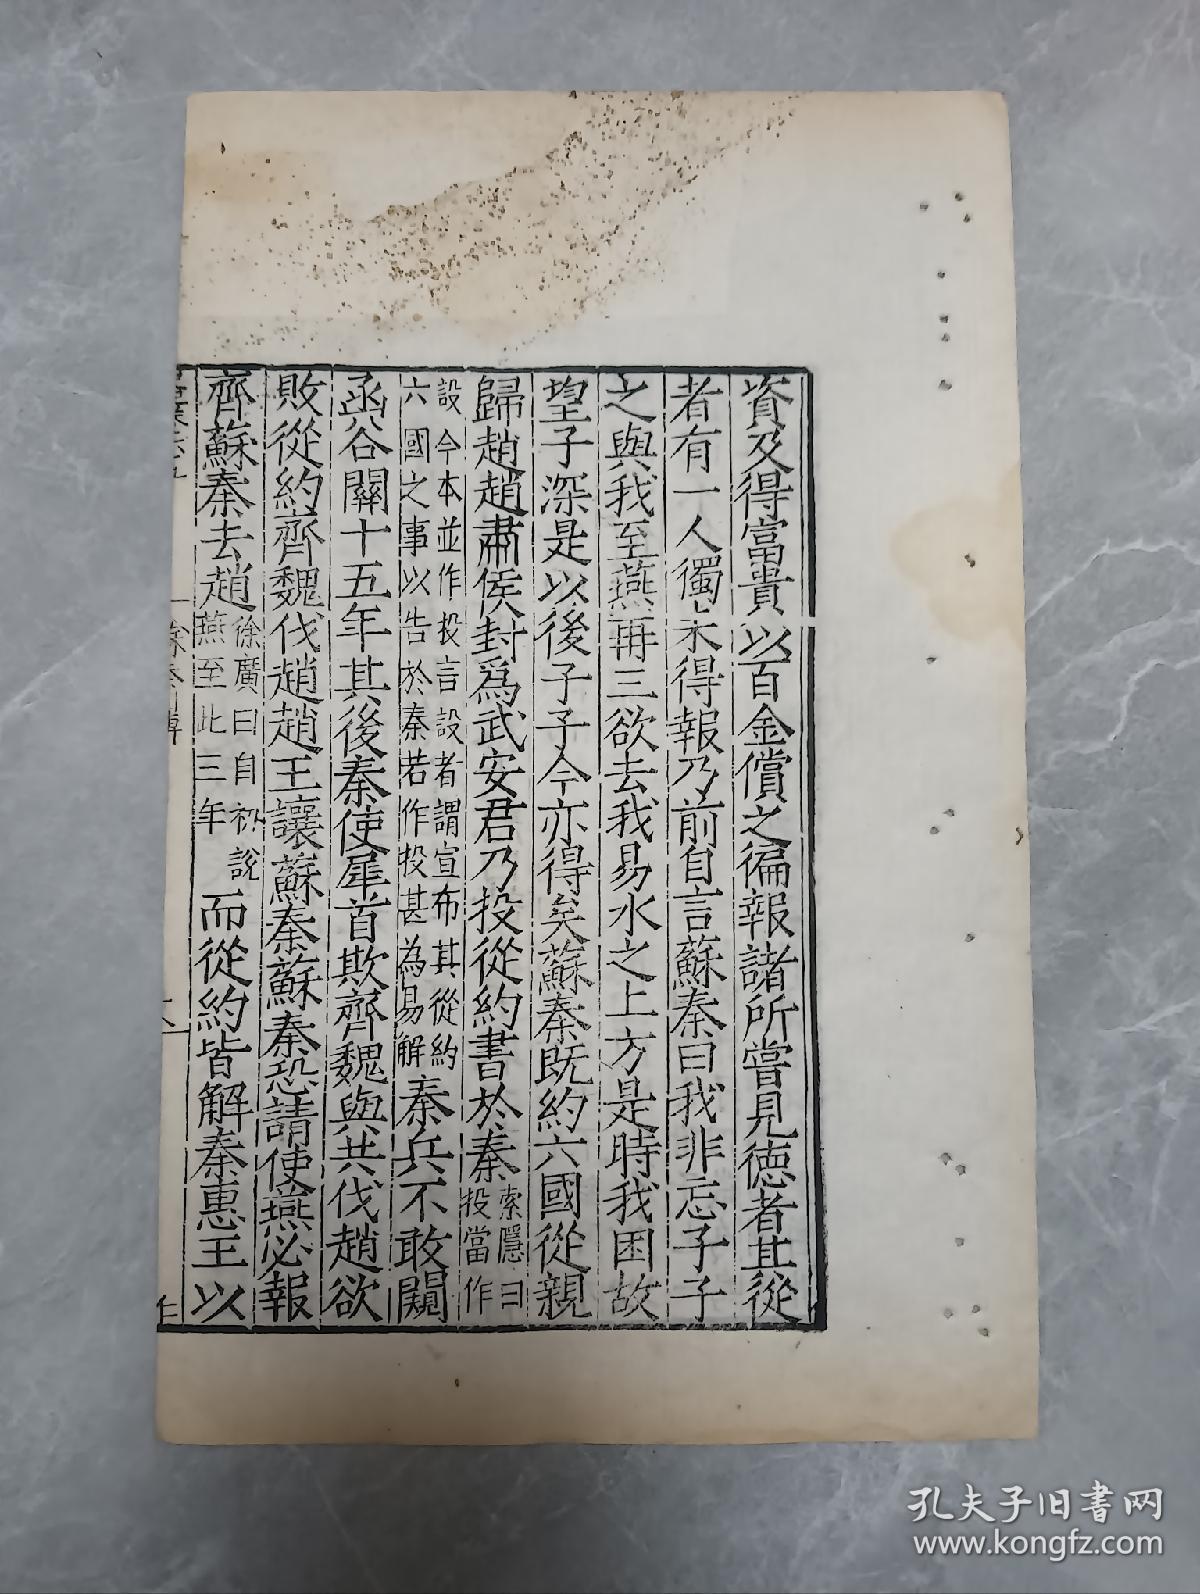 資及得富貴以百金償之徧報諸所嘗見德者其從
者有一人獨未得報乃前自言蘇秦曰我非忘子子
之與我至燕再三欲去我易水之上方是時我困故
望子深是以後子子今亦得矣蘇秦既約六國從親
歸趙趙肅侯封爲武安君乃投從約書於秦索隱曰投當作
設今本並作投言設者謂宣布其從約六國之事以告於秦若作投甚為易解秦兵不敢闚
函谷關十五年其後秦使犀首欺齊魏與共伐趙欲
敗從約齊魏伐趙趙王讓蘇秦蘇秦恐請使燕必報
齊蘇秦去趙徐廣曰自初說燕至此三年而從約皆解秦惠王以
孔夫子旧书网
www.kongfz.com